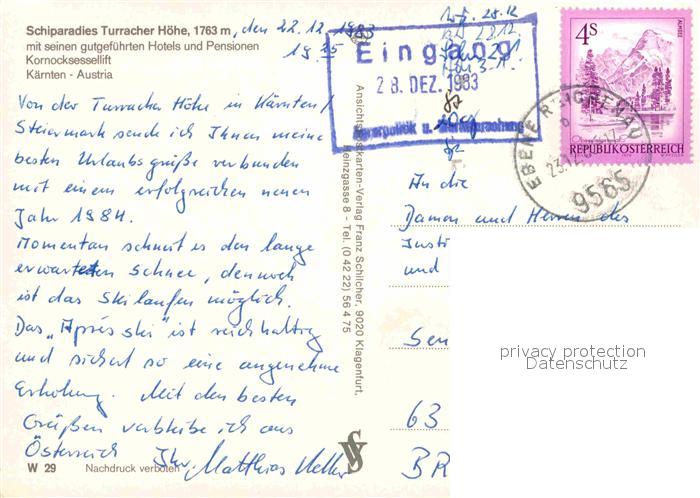 Schiparadies Turracher Höhe, 1763 m,
mit seinen gutgeführten Hotels und Pensionen
Kornocksessellift
Kärnten - Austria
den 22.12.1983
19.35
Von der Turracher Höhe in Kärnten/
Steiermark sende ich Ihnen meine
besten Urlaubsgrüße verbunden
mit einem erfolgreichen neuen
Jahr 1984.
Momentan schneit es den lange
erwarteten Schnee, dennoch
ist das Skilaufen möglich.
Das "Après ski" ist reichhaltig
und sichert so eine angenehme
Erholung. Mit den besten
Grüßen verbleibe ich aus
Österreich Ihr Matthias
W 29 Nachdruck verboten
Ansichtskarten-Verlag Franz Schilcher, 9020 Klagenfurt,
Heinzgasse 8 - Tel. (0 42 22) 56 4 75
Eingang
28. DEZ. 1983
28.12
4S
ALMSEE
REPUBLIK ÖSTERREICH
EBENE REICHENAU
23.12.
9565
An die
Damen und Herren des
Insti
und
Sen
63
BR
privacy protection
Datenschutz